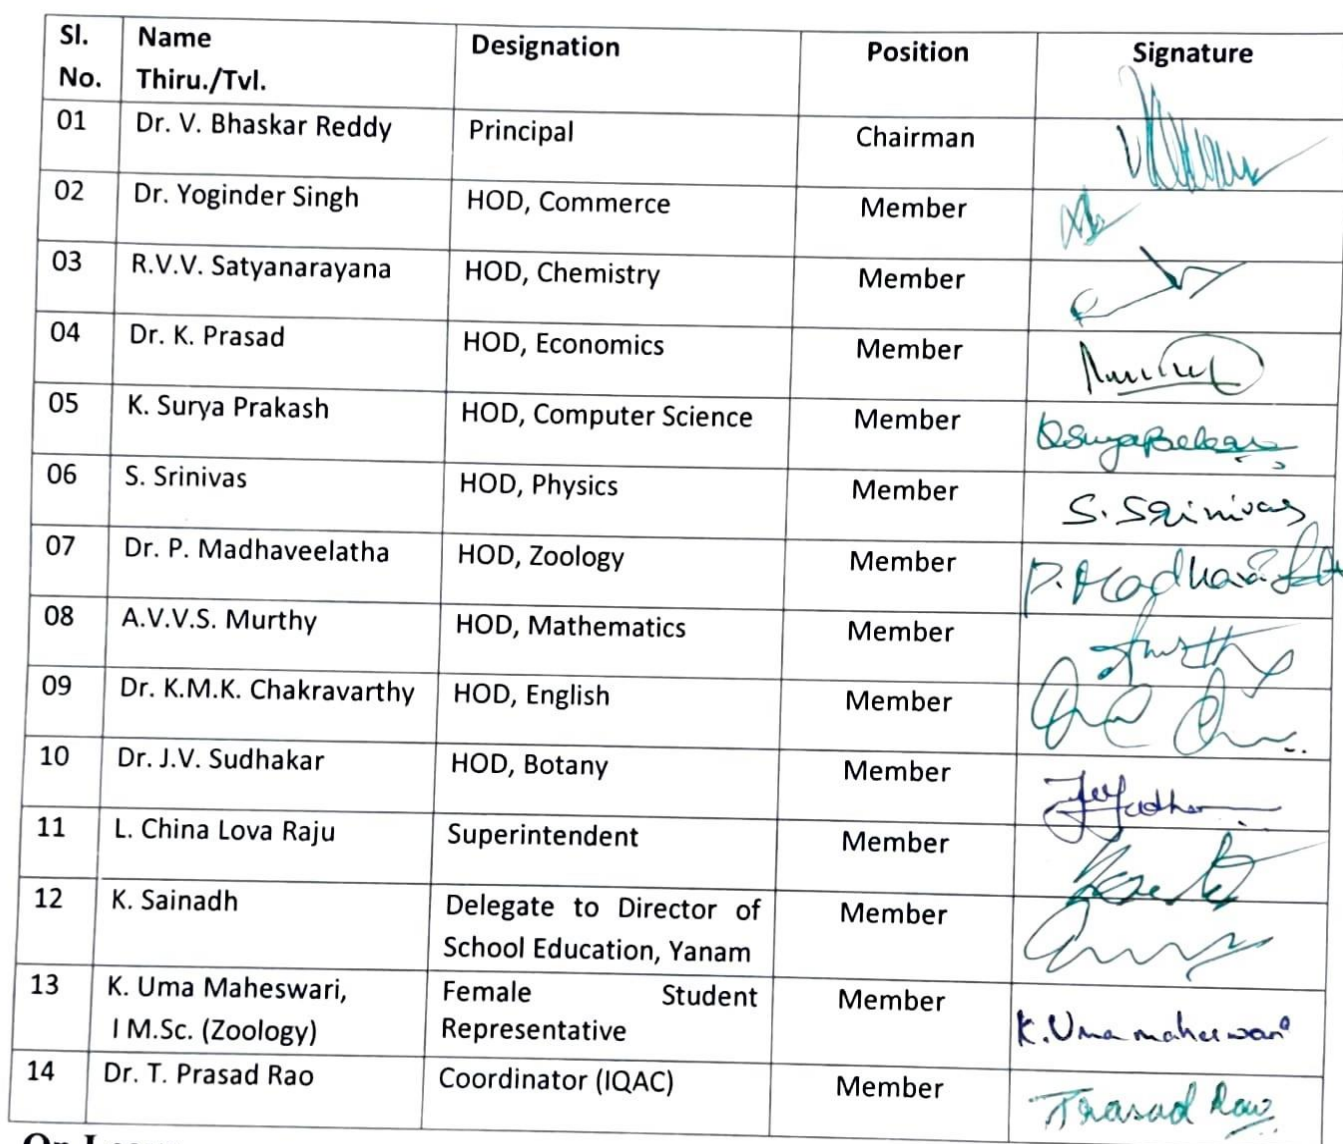 Sl. No. Name Thiru./Tvl. Designation Position Signature
01 Dr. V. Bhaskar Reddy Principal Chairman
02 Dr. Yoginder Singh HOD, Commerce Member
03 R.V.V. Satyanarayana HOD, Chemistry Member
04 Dr. K. Prasad HOD, Economics Member
05 K. Surya Prakash HOD, Computer Science Member
06 S. Srinivas HOD, Physics Member S. Srinivas
07 Dr. P. Madhaveelatha HOD, Zoology Member
08 A.V.V.S. Murthy HOD, Mathematics Member
09 Dr. K.M.K. Chakravarthy HOD, English Member
10 Dr. J.V. Sudhakar HOD, Botany Member
11 L. China Lova Raju Superintendent Member
12 K. Sainadh Delegate to Director of Member
School Education, Yanam
13 K. Uma Maheswari, Female Student Member K. Uma maheswari
I M.Sc. (Zoology) Representative
14 Dr. T. Prasad Rao Coordinator (IQAC) Member T Prasad Rao